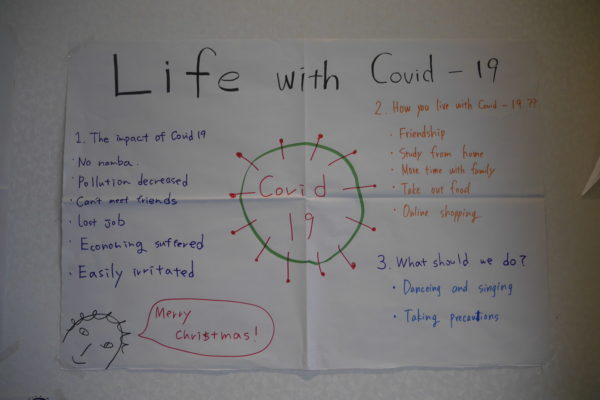 Life with Covid-19
1. The impact of Covid 19
· No nomba.
· Pollution decreased
· Can't meet friends
· Lost job
· Economing suffered
· Easily irritated
Covid
19
2. How you live with Covid-19.??
· Friendship
· Study from home
· More time with family
· Take out food
· Online shopping
3. What should we do?
· Danceing and singing
· Taking precautions
Merry
Christmas!